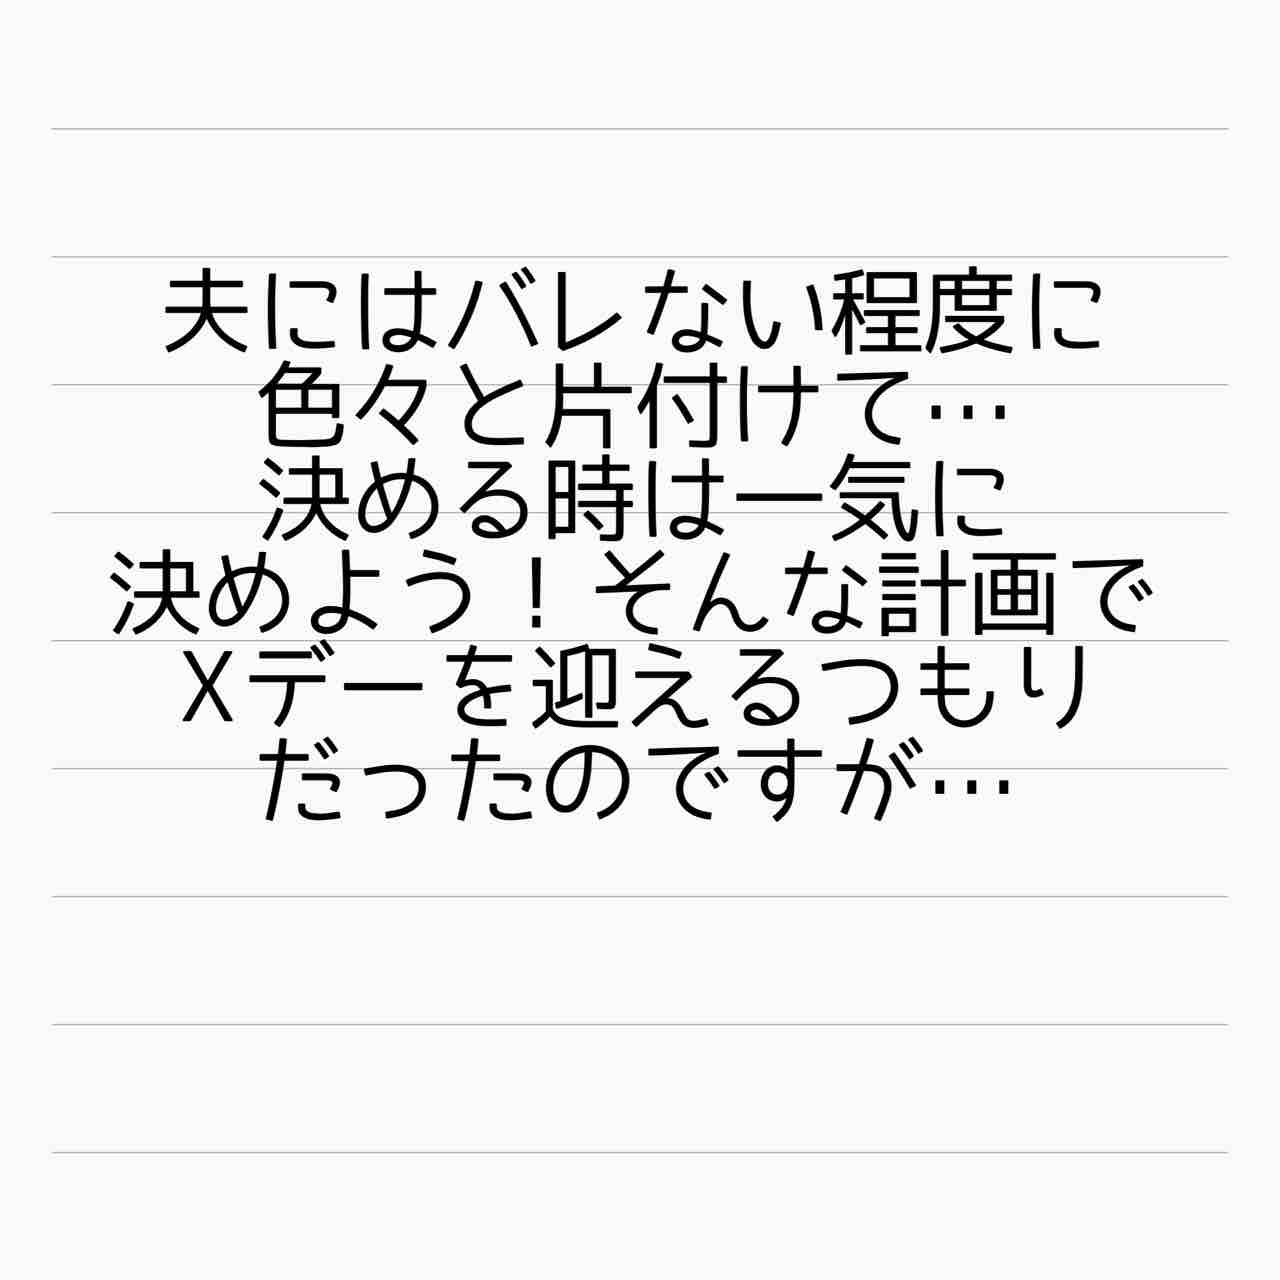 夫にはバレない程度に
色々と片付けて…
決める時は一気に
決めよう！そんな計画で
Xデーを迎えるつもり
だったのですが…